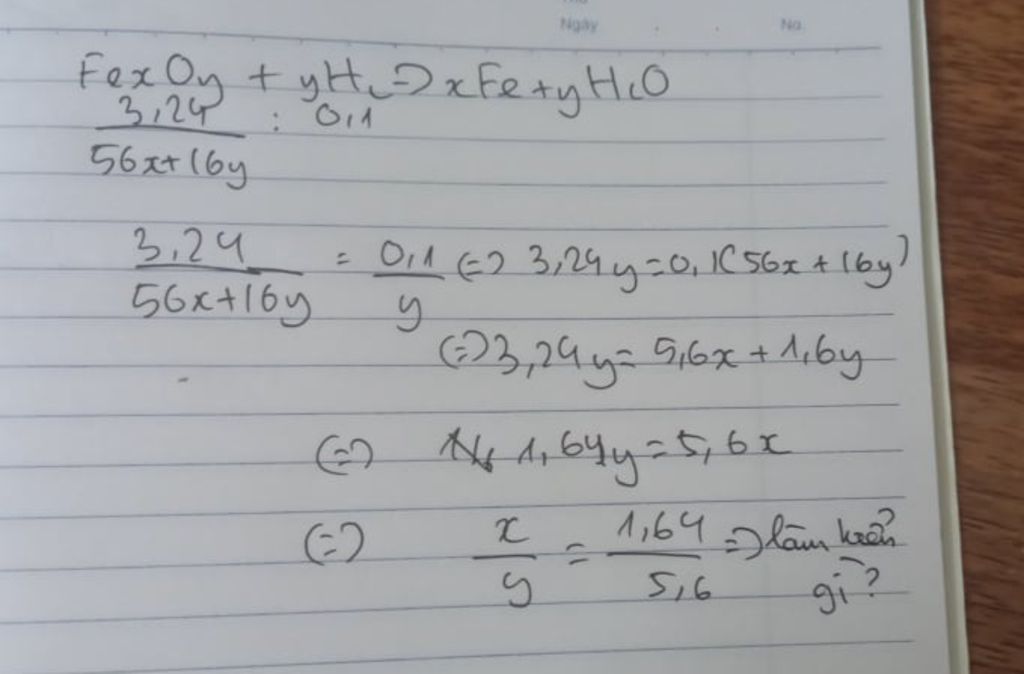 Ngày No.
FexOy + yH₂ => xFe + yH₂O
3,24 : 0,1
56x+16y
3,24 / 56x+16y = 0,1 / y (=) 3,24y = 0,1(56x + 16y)
(=) 3,24y = 5,6x + 1,6y
(=) 1,64y = 5,6x
(=) x / y = 1,64 / 5,6 => làm
gì?